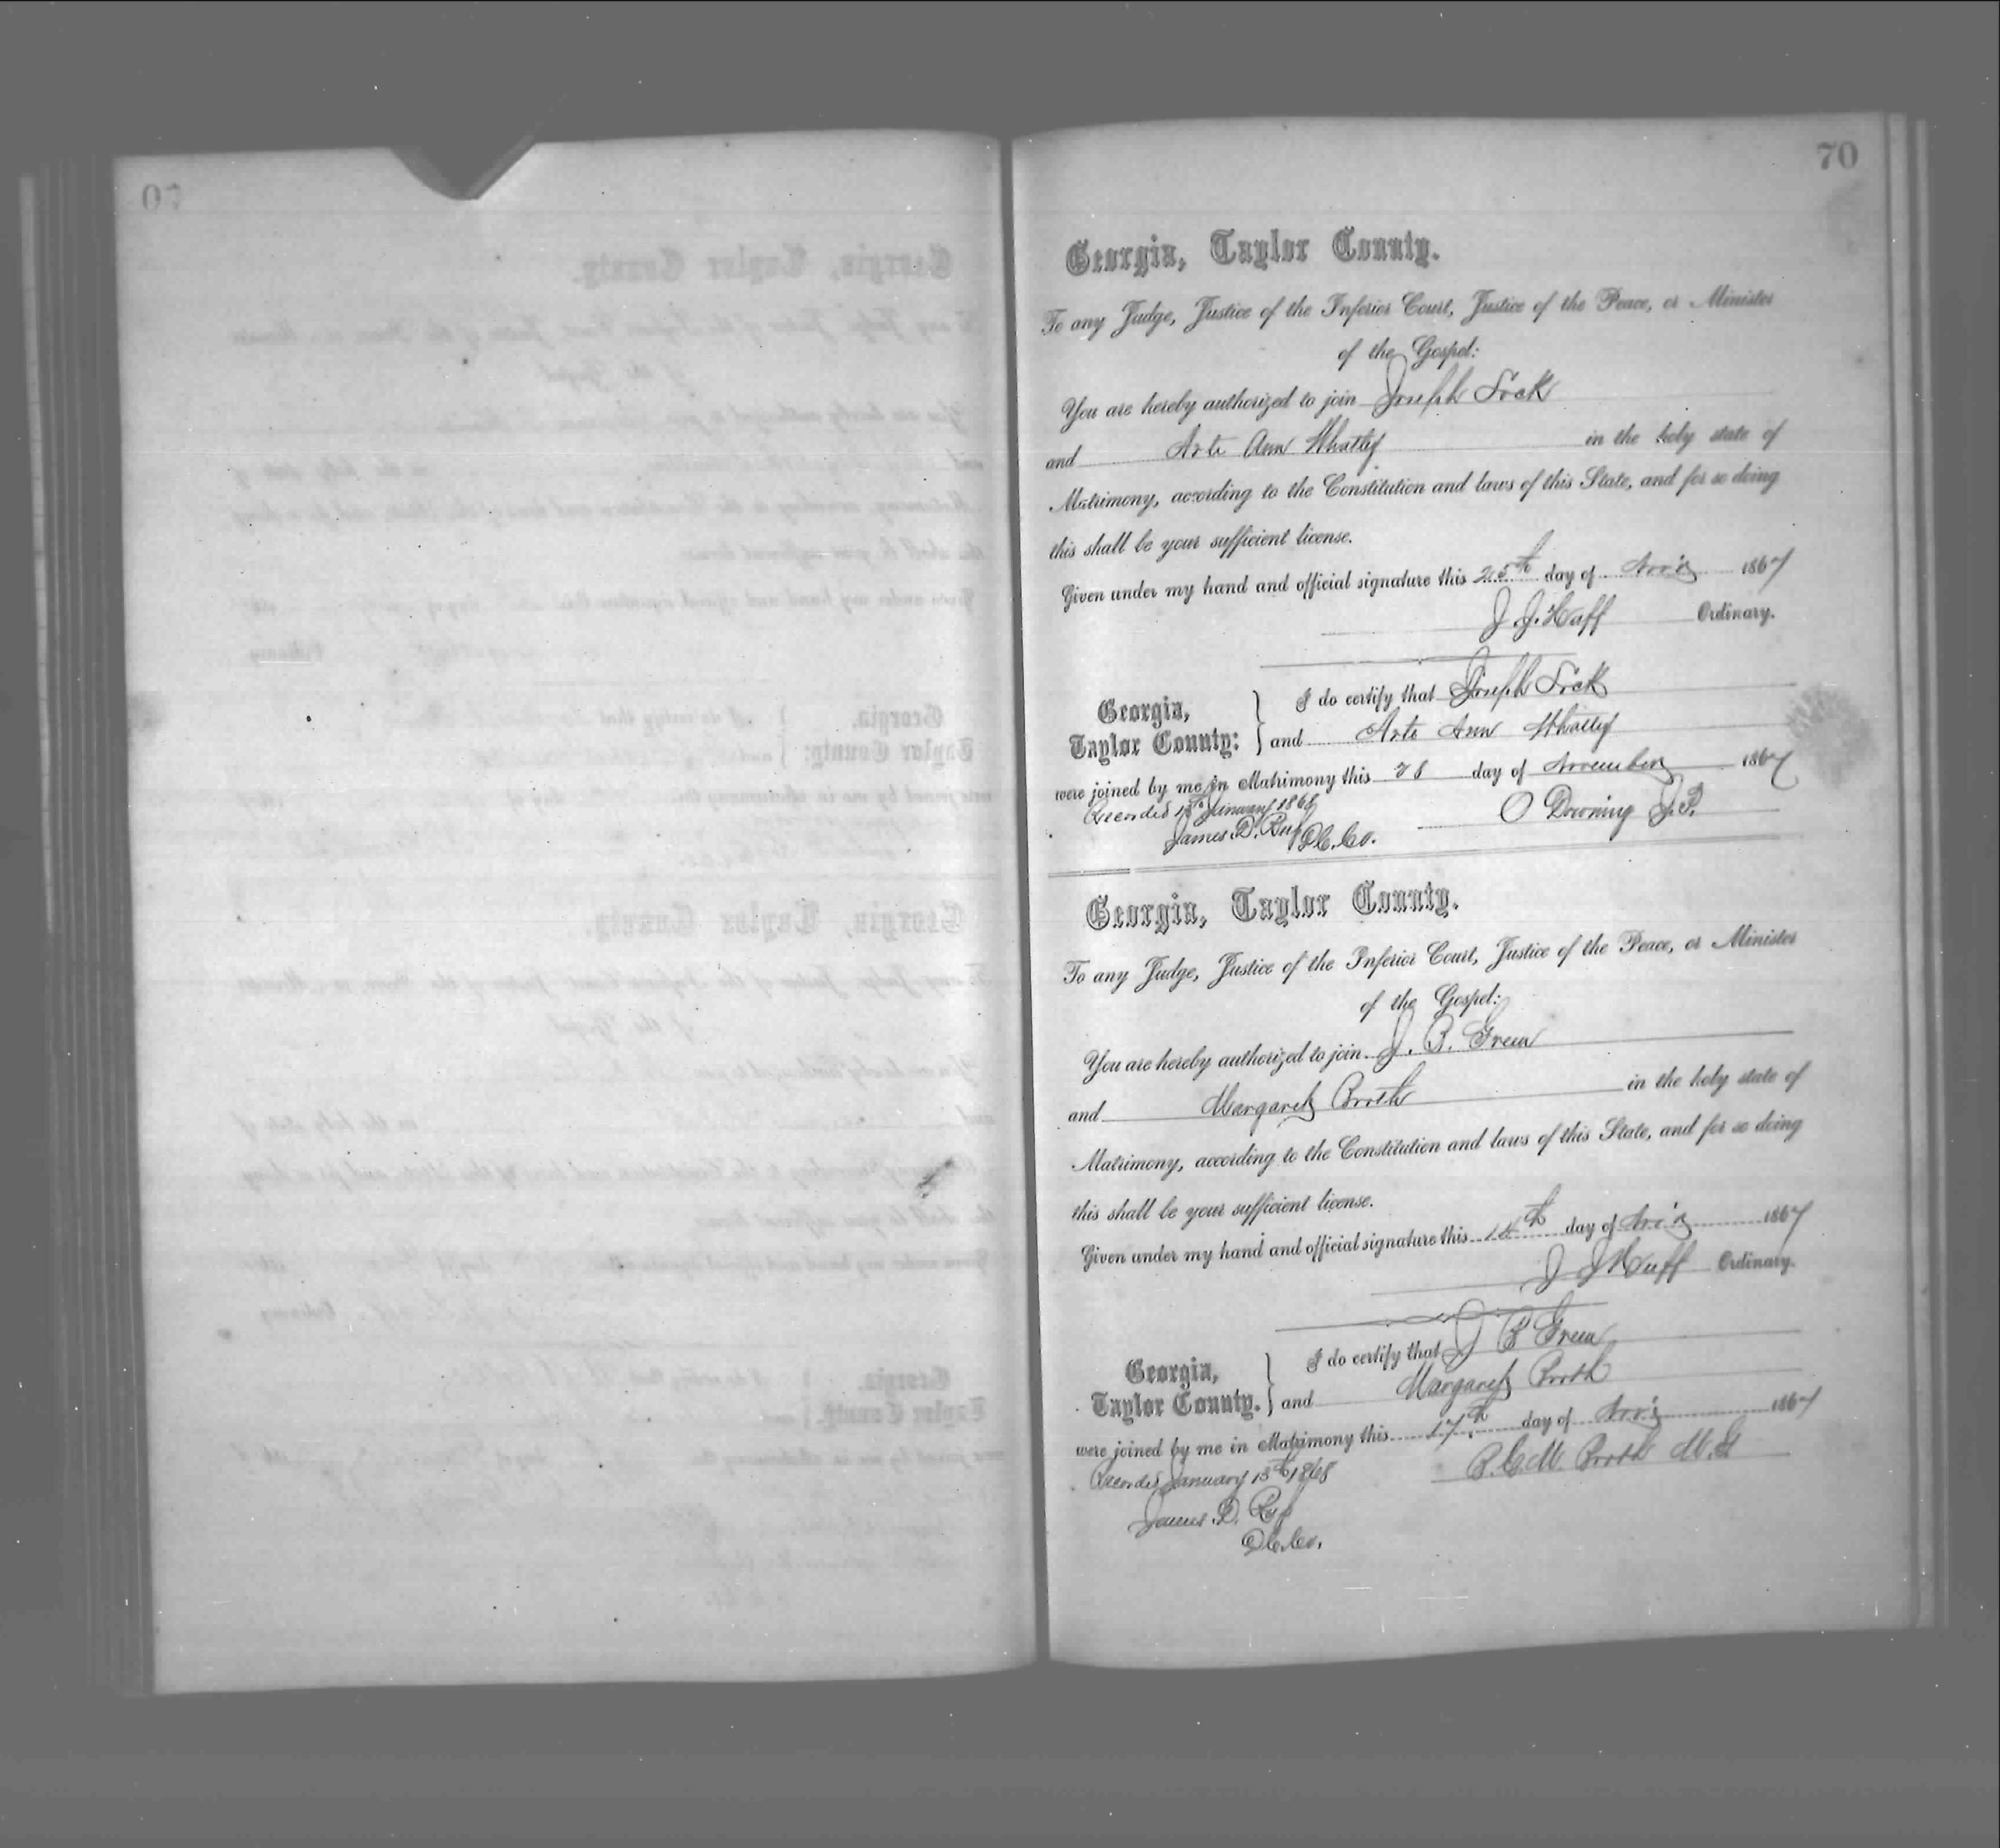 70
Georgia, Taylor County.
To any Judge, Justice of the Inferior Court, Justice of the Peace, or Minister
of the Gospel:
You are hereby authorized to join Joseph Lock
and Arte Ann Whatley in the holy state of
Matrimony, according to the Constitution and laws of this State, and for so doing
this shall be your sufficient license.
Given under my hand and official signature this 25th day of Nov'r 1867
J. J. Huff Ordinary.
Georgia,
Taylor County:
I do certify that Joseph Lock
and Arte Ann Whatley
were joined by me in Matrimony this 28 day of November 1867
Recorded 13th January 1868
O Downing J.P.
James D. D.C.C.O.
Georgia, Taylor County.
To any Judge, Justice of the Inferior Court, Justice of the Peace, or Minister
of the Gospel:
You are hereby authorized to join J. B. Green
and Margaret Booth in the holy state of
Matrimony, according to the Constitution and laws of this State, and for so doing
this shall be your sufficient license.
Given under my hand and official signature this 14th day of Nov'r 1867
J J Huff Ordinary.
Georgia,
Taylor County.
I do certify that J B Green
and Margaret Booth
were joined by me in Matrimony this 17th day of Nov'r 1867
Recorded January 13th 1868
B. C. M. Booth M.G
James D.
D.C.C.O.